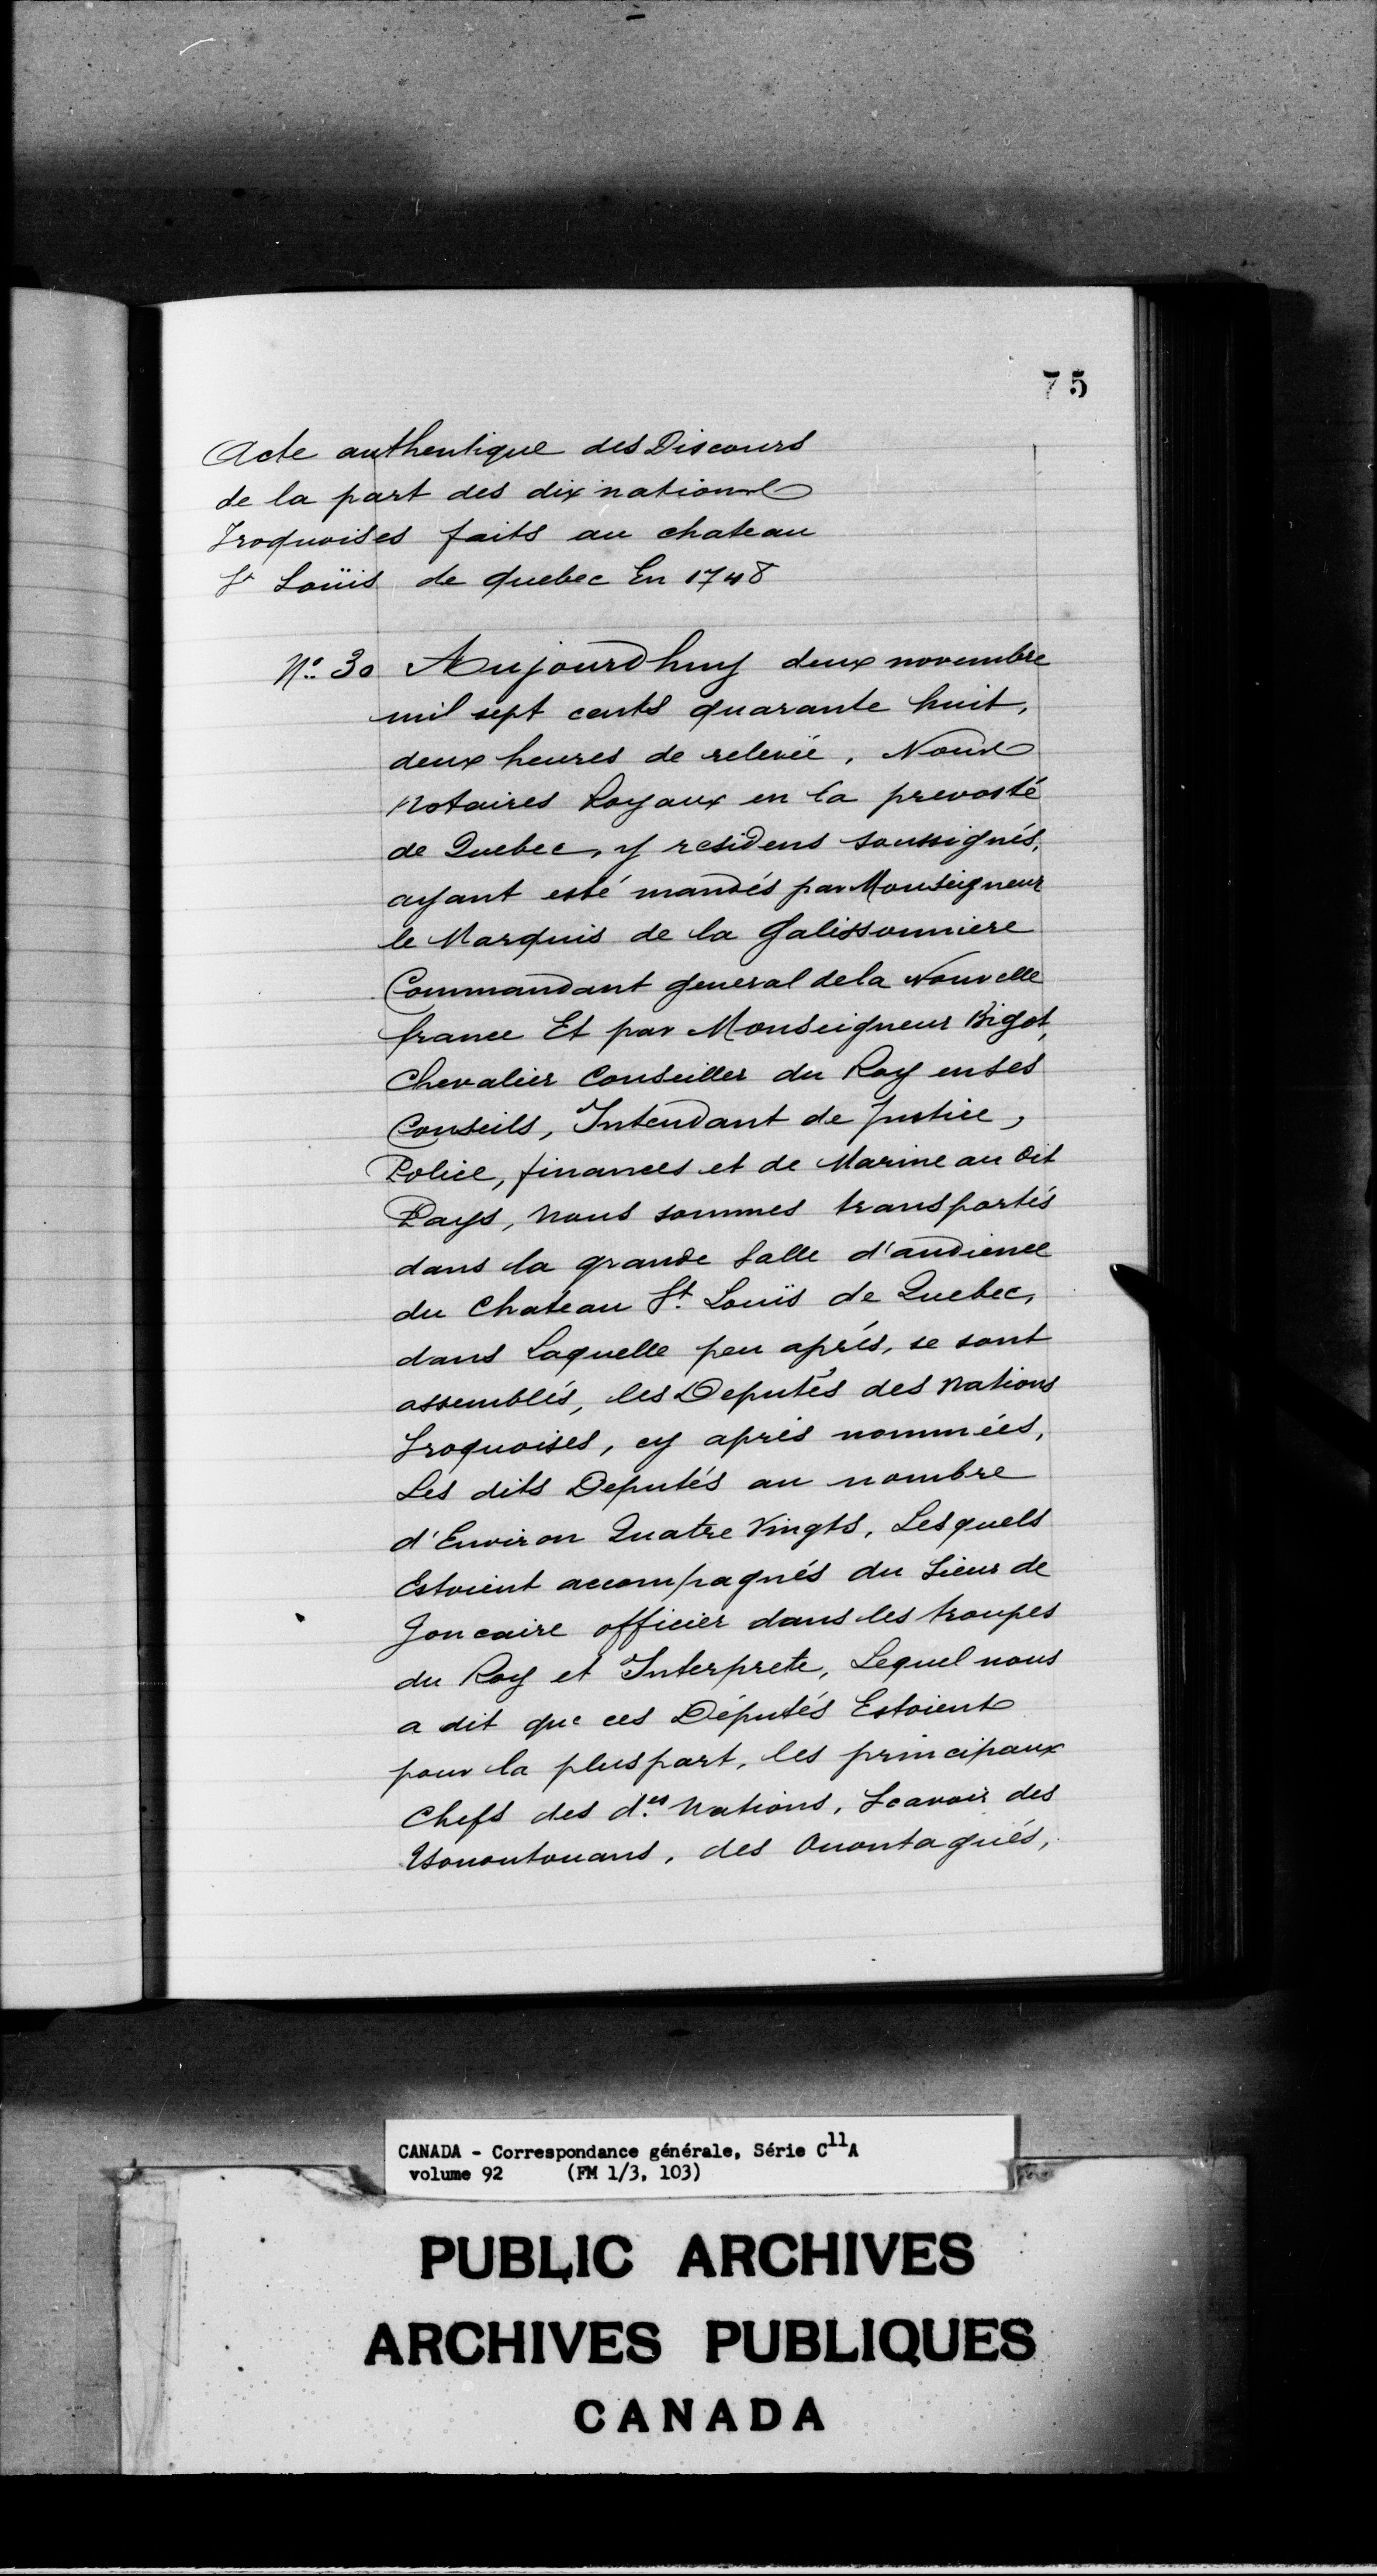 75
Acte authentique des Discours
de la part des dix nations
Iroquoises faits au chateau
St Louïs de Quebec En 1748
No. 30 Aujourdhuy deux novembre
mil sept cents quarante huit,
deux heures de relevée, Nous
Notaires Royaux en la prevosté
de Quebec, y residens soussignés,
ayant esté mandés par Monseigneur
le Marquis de la Galissonniere
Commandant general dela Nouvelle
france Et par Monseigneur Bigot,
Chevalier Conseiller du Roy en ses
Conseils, Intendant de Justice,
Police, finances et de Marine au dit
Pays, nous sommes transportés
dans la grande Salle d'audience
du Chateau St. Louïs de Quebec,
dans Laquelle peu aprés, se sont
assemblés, les Deputés des Nations
Iroquoises, cy aprés nommées,
Lés dits Deputés au nombre
d'Environ Quatre Vingts, Lesquels
Estoient accompagnés du Sieur de
Joncaire officier dans les troupes
du Roy et Interprete, Lequel nous
a dit que ces Députés Estoient
pour la pluspart, les principaux
Chefs des d.es Nations, Scavoir des
Tsonontouans, des Onontagués,
CANADA - Correspondance générale, Série C11A
volume 92 (FM 1/3, 103)
PUBLIC ARCHIVES
ARCHIVES PUBLIQUES
CANADA